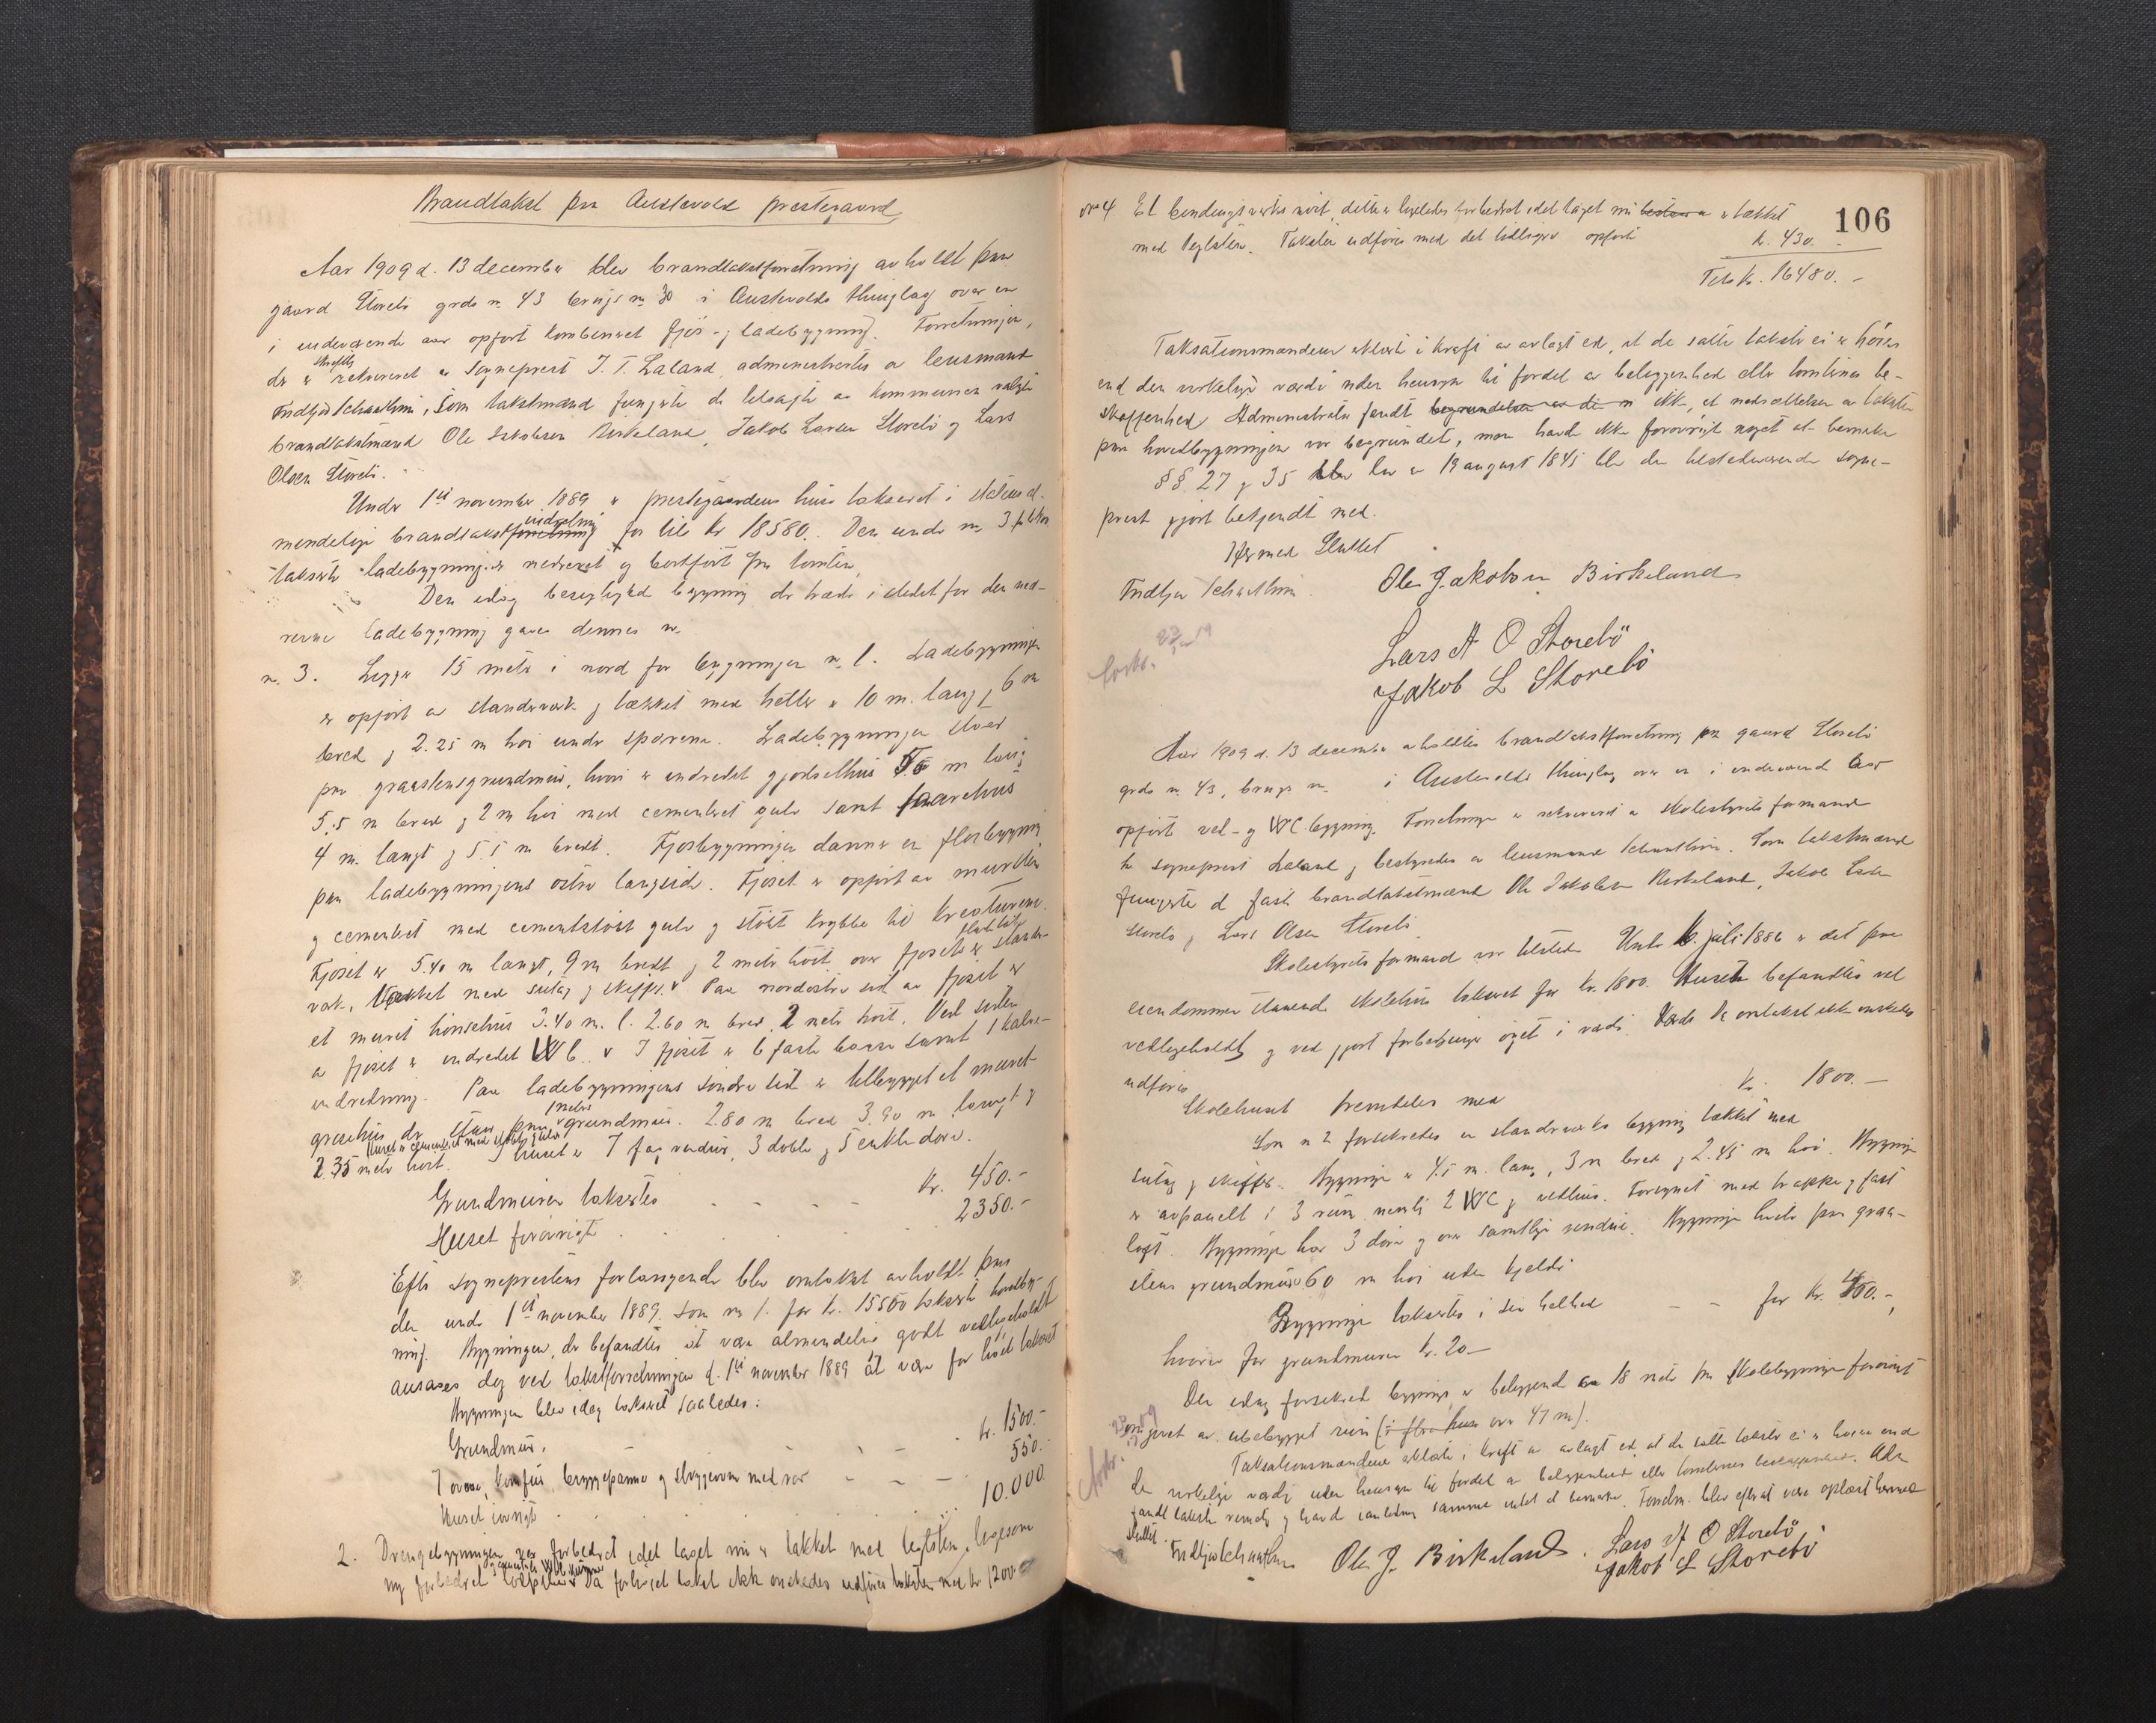 Brandtakst paa Austevold prestegaard
Aar 1909 d. 13 december blev brandtakstforretning avholdt paa
gaard Storebö grds n. 43 brugs n. 30 i Austevolds thinglag over en
i indeværende aar opfört kombineret fjös- og ladebygning. Forretningen,
der er skriftlig rekvireret av Sogneprest J. T. Laland, administrertes av lensmand
Fridtjof Schathun, som takstmænd fungerte de lelsagte av kommunen valgte
brandtakstmænd Ole Jakobsen Birkeland, Jakob Larsen Storebö og Lars
Olsen Storebö.
Under 1ste november 1889 er prestegaardens huse takseret i
brandtakst for til kr 18580. Den under n. 3
takserte ladebygning er nedrevet og bortfört fra tomten.
Den idag besigtigede bygning der træder i stedet for den ned-
revne ladebygning gaves dennes nr.
n. 3. Ligger 15 meter i nord for bygningen n. 1. Ladebygningen
er opfört av standværk og tækket med heller er 10 m. lang, 6 m
bred og 2.25 m höi under sperrene. Ladebygningen staar
paa graastensgrundmur, hvori er indredet gjödselhus m lang
5.5 m bred og 2 m höi med cementert gulv samt faarehus
4 m. langt og 5.5 m bredt. Fjösbygningen danner en flöibygning
paa ladebygningens östre langside. Fjöset er opfört av mursten
og cementert med cementstöpt gulv og stöpt krybbe til kreaturene.
Fjöset er 5.40 m langt, 9 m bredt og 2 meter höit over fjöset er stand-
værk, tækket med sutag og skiffer. Paa nordöstre side av fjöset er
et muret hönsehus 3.40 m. l. 2.60 m bred 2 meter höit. Ved siden
av fjöset er indredet WC. I fjöset er 6 faste baase samt 1 kalve-
indredning. Paa ladebygningens söndre side er tilbygget et muret
grisehus der staar paa 1 meters grundmur. 2.80 m bred 3.90 m langt og
2.35 meter höit. I huset er 7 fag vinduer, 3 doble og 5 enkle döre.
Grundmuren takseres - - - - kr. 450.-
Huset forövrigt . . . 2350.-
Efter sogneprestens forlangende blev omtakst avholdt paa
den under 1ste november 1889 som n. 1. for kr. 15500 takserte hovedbyg-
ning. Bygningen, der befandtes at være almindelig godt vedligeholdt
ansaaes dog ved takstforretningen d. 1ste november 1889 at være for höit takseret
Bygningen blev idag takseret saaledes:
Grundmur. - - - - kr. 1500.-
7 ovne, komfur, bryggepanne og med rör - - - 550.-
Huset iövrigt . . . . 10.000
2. Drengebygningen er forbedret idet taget nu er tækket med teglsten, ligesom
ny forbedret Da forhöiet takst ikke önskedes utföres taksten med kr 1200
106
n. 4 Et bindingsverks naust, dette er ligeledes forbedret idet taget nu er tækket
med teglsten. Taksten utföres med det tidligere opförte kr. 430.-
Tils kr. 16480.-
Taksationsmændene erklærte i kraft av avlagt ed, at de satte takster ei er höiere
end den virkelige værdi uden hensyn til fordel av beliggenhed eller tomtens be-
skaffenhed. Administrator fandt ikke, at nedsættelsen av taksten
paa hovedbygningen var begrundet, men havde ikke forövrigt noget at bemerke
§§ 27 og 35 i lov av 19 august 1845 blev den tilstedeværende sogne-
prest gjort bekjendt med.
Hermed Sluttet
Fridtjov Schathun Ole Jakobsen Birkeland
Lars A O Storebö
Jakob L Storebö
Aar 1909 d. 13 december avholdtes brandtakstforretning paa gaard Storebö
grds n. 43, brugs n. i Austevolds thinglag over en i indeværende aar
opfört ved- og WC bygning. Forretningen er rekvireret av skolestyrets formand
hr sogneprest Laland og bestyredes av lensmand Schathun. Som takstmænd
fungerte de faste brandtakstmænd Ole Jakobsen Birkeland, Jakob Larsen
Storebö og Lars Olsen Storebö
Skolestyrets formand var tilstede. Under 6. juli 1886 er det paa
eiendommen staaende skolehus takseret for kr. 1800. Huset befandtes vel
vedligeholdt og ved gjort forbedringer öget i værdi.
utföres
Skolehuset fremdeles med kr. 1800.-
Som n 2 forsikredes en standværks bygning tækket med
sutag og skiffer. Bygningen er 4.5 m. lang, 3 m bred og 2.45 m höi. Bygningen
er avpanelt i 3 rum nemlig 2 WC og vedhus. Forsynet med trappe og fast
loft. Bygningen har 3 döre og over samtlige vinduer. Bygningen hviler paa graa-
stens grundmur 60 m höi uden kjelder
Bygningen takseres i sin helhed - - for kr. 450.-,
hvorav for grundmuren kr. 20.-
Den idag forsikrede bygning er beliggende 18 meter fra skolebygningen forövrigt
omgivet av ubebygget rum
Taksationsmændene erklærte i kraft av avlagt ed at de satte takster ei er höiere end
den virkelige værdi uden hensyn til fordel av beliggenhed eller tomtens beskaffenhed. Adm
fandt taksten rimelig og havde i anledning samme intet at bemerke. Forretn. blev efter at være oplæst hermed
sluttet.
Fridtjov Schathun Ole J. Birkeland. Lars A O Storebö
Jakob L Storebö